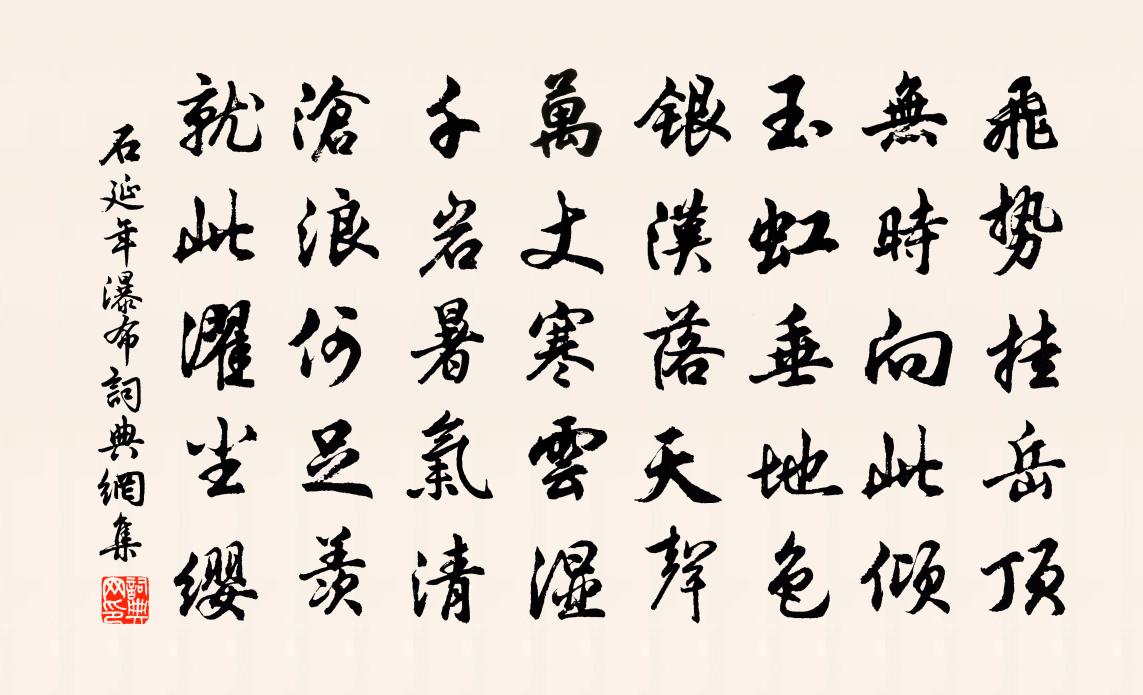 飛势挂岳頂
無時向此傾
玉虹垂地色
銀漢落天聲
萬丈寒雲湿
千岩暑氣清
滄浪何足羨
就此濯尘纓
石延年瀑布詞典網集
詞典
网印